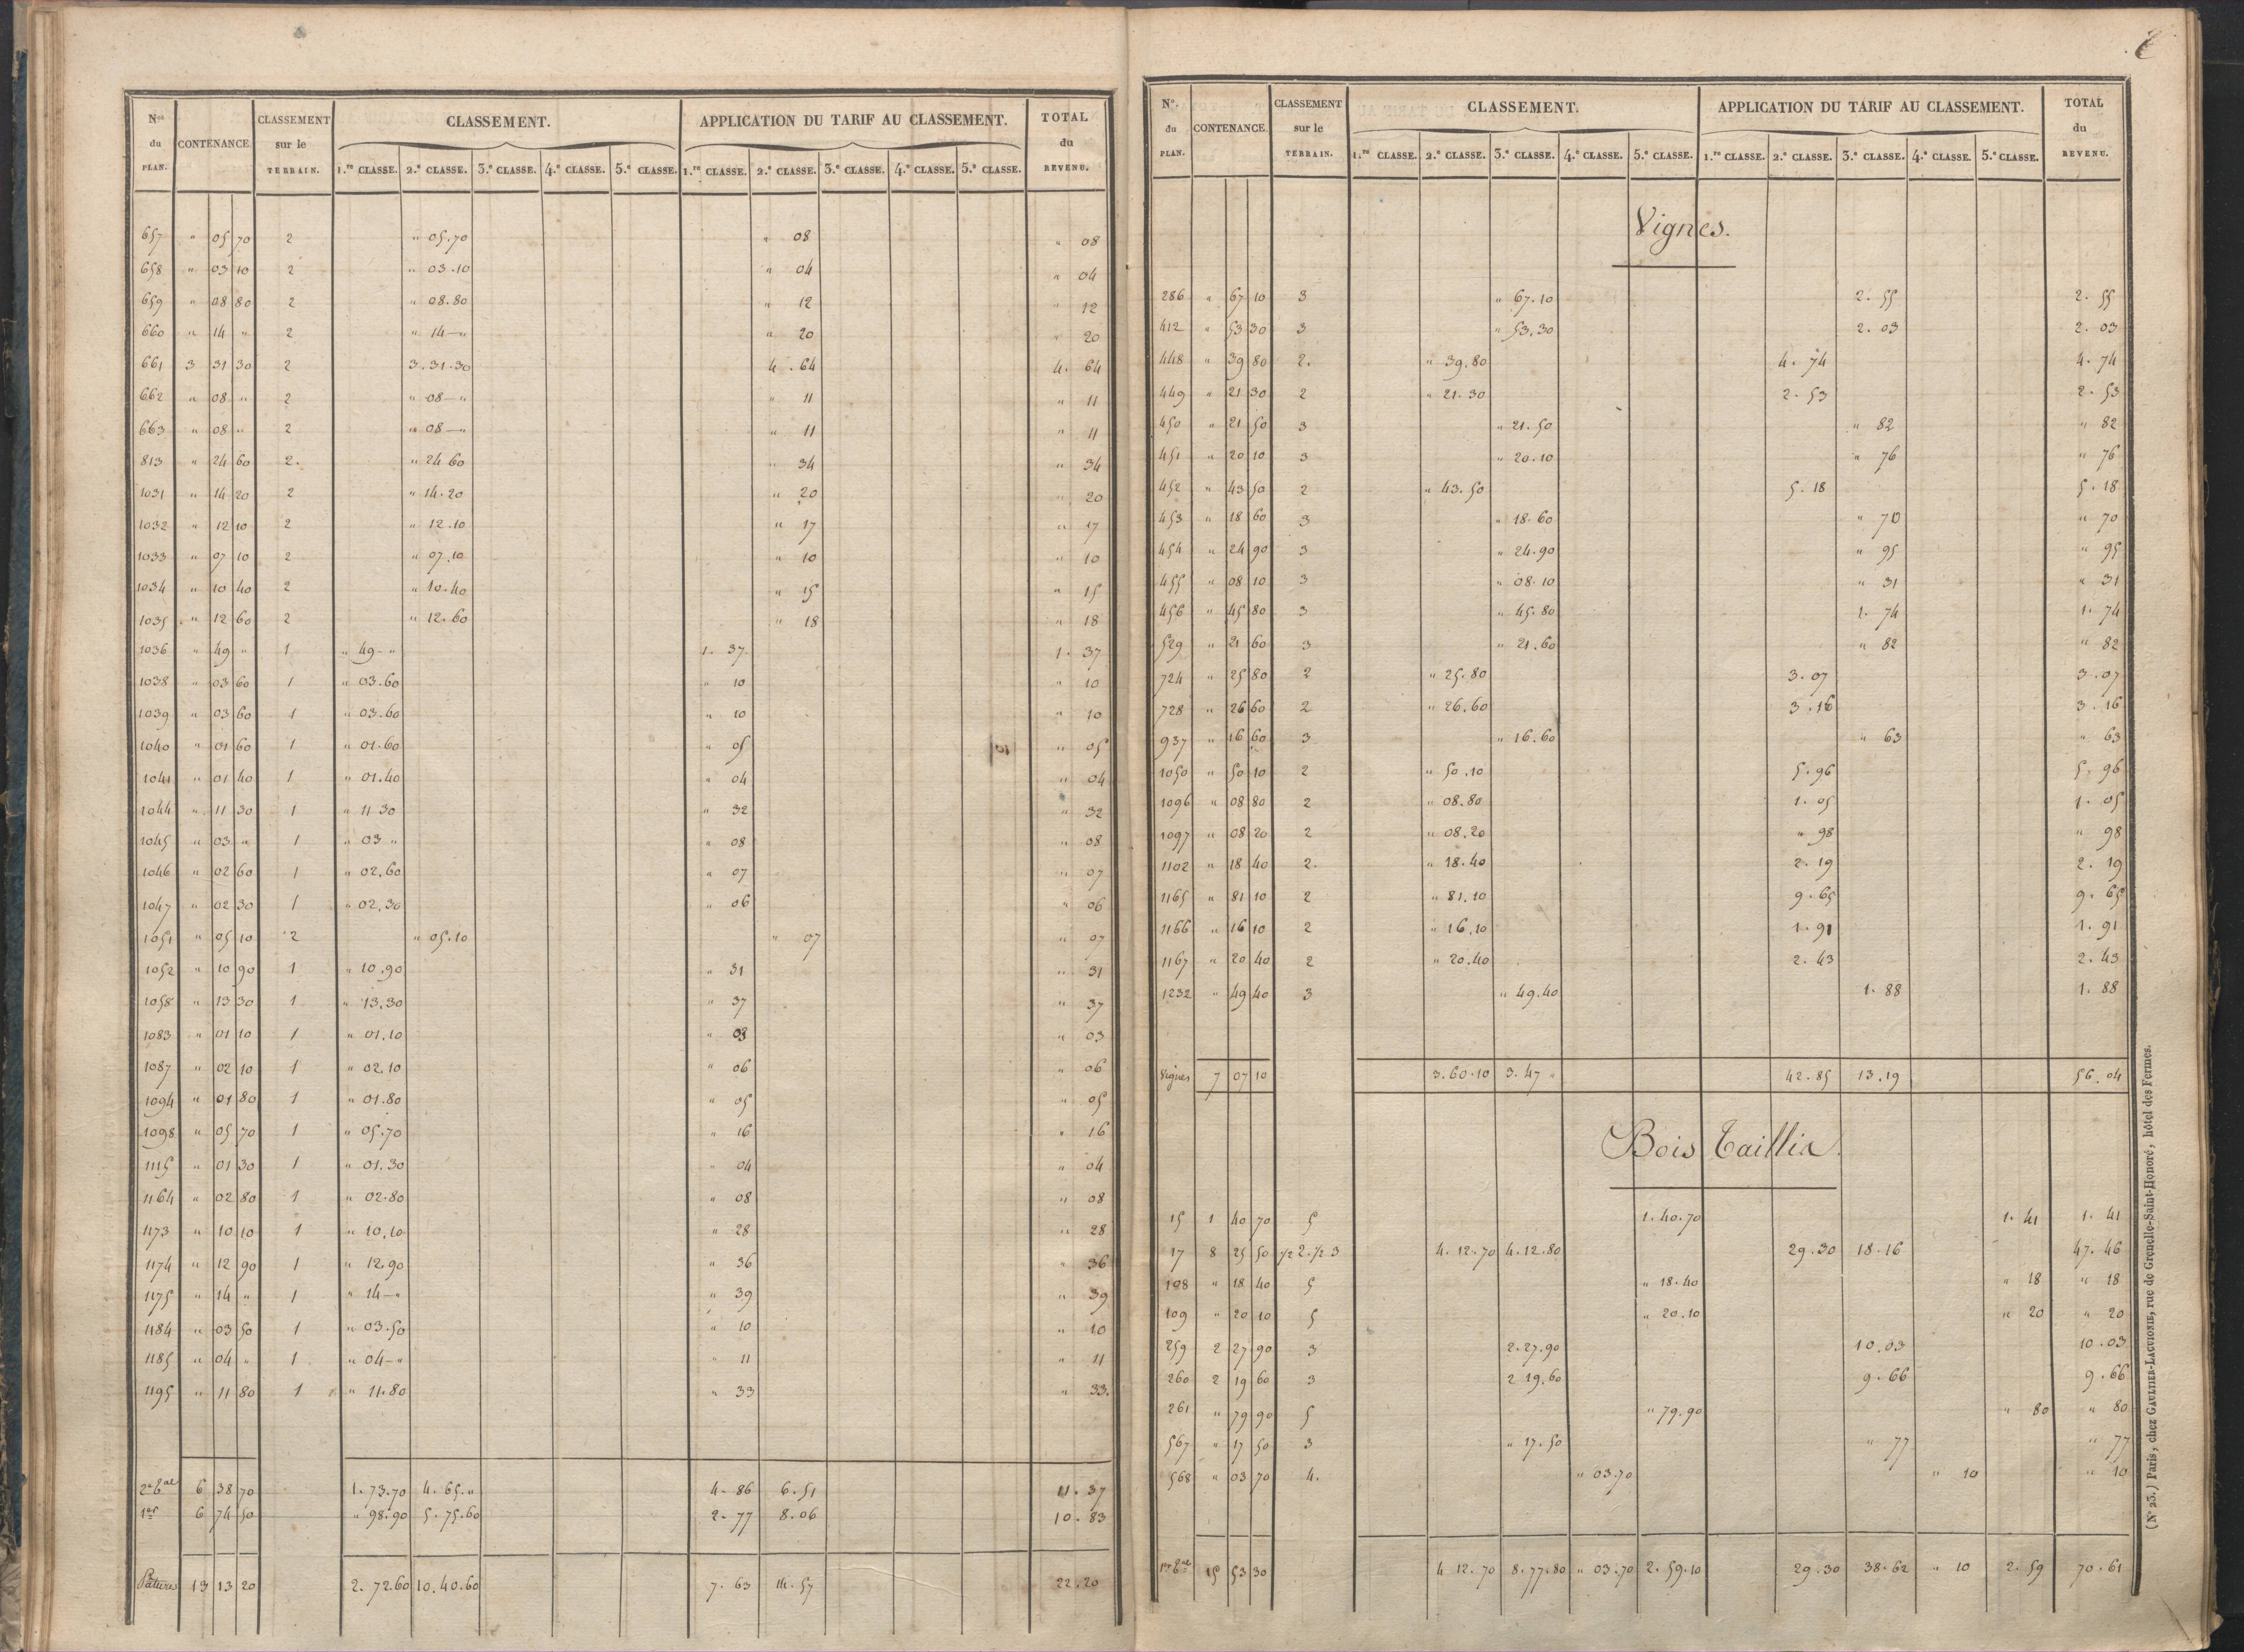 Nos du PLAN. CONTENANCE. CLASSEMENT sur le TERRAIN. CLASSEMENT. APPLICATION DU TARIF AU CLASSEMENT. TOTAL du REVENU.
1.re CLASSE. 2.e CLASSE. 3.e CLASSE. 4.e CLASSE. 5.e CLASSE. 1.re CLASSE. 2.e CLASSE. 3.e CLASSE. 4.e CLASSE. 5.e CLASSE.
657 " 05 70 2 " 05.70 " 08 " 08
658 " 03 10 2 " 03.10 " 04 " 04
659 " 08 80 2 " 08.80 " 12 " 12
660 " 14 " 2 " 14—" " 20 " 20
661 3 31 30 2 3.31.30 4.64 4.64
662 " 08 " 2 " 08—" " 11 " 11
663 " 08 " 2 " 08—" " 11 " 11
813 " 24 60 2. " 24 60 " 34 " 34
1031 " 14 20 2 " 14.20 " 20 " 20
1032 " 12 10 2 " 12.10 " 17 " 17
1033 " 07 10 2 " 07.10 " 10 " 10
1034 " 10 40 2 " 10.40 " 15 " 15
1035 " 12 60 2 " 12.60 " 18 " 18
1036 " 49 " 1 " 49—" 1.37 1.37
1038 " 03 60 1 " 03.60 " 10 " 10
1039 " 03 60 1 " 03.60 " 10 " 10
1040 " 01 60 1 " 01.60 " 05 " 05
1041 " 01 40 1 " 01.40 " 04 " 04
1044 " 11 30 1 " 11 30 " 32 " 32
1045 " 03 " 1 " 03 " " 08 " 08
1046 " 02 60 1 " 02.60 " 07 " 07
1047 " 02 30 1 " 02.30 " 06 " 06
1051 " 05 10 2 " 05.10 " 07 " 07
1052 " 10 90 1 " 10.90 " 31 " 31
1058 " 13 30 1 " 13.30 " 37 " 37
1083 " 01 10 1 " 01.10 " 03 " 03
1087 " 02 10 1 " 02.10 " 06 " 06
1094 " 01 80 1 " 01.80 " 05 " 05
1098 " 05 70 1 " 05.70 " 16 " 16
1115 " 01 30 1 " 01.30 " 04 " 04
1164 " 02 80 1 " 02.80 " 08 " 08
1173 " 10 10 1 " 10.10 " 28 " 28
1174 " 12 90 1 " 12.90 " 36 " 36
1175 " 14 " 1 " 14—" " 39 " 39
1184 " 03 50 1 " 03.50 " 10 " 10
1185 " 04 " 1 " 04—" " 11 " 11
1195 " 11 80 1 " 11.80 " 33 " 33.
2e tal 6 38 70 1.73.70 4.65." 4.86 6.51 11.37
1er 6 74 50 " 98.90 5.75.60 2.77 8.06 10.83
Patures 13 13 20 2.72.60 10.40.60 7.63 14.57 22.20
Nos du PLAN. CONTENANCE. CLASSEMENT sur le TERRAIN. CLASSEMENT. APPLICATION DU TARIF AU CLASSEMENT. TOTAL du REVENU.
1.re CLASSE. 2.e CLASSE. 3.e CLASSE. 4.e CLASSE. 5.e CLASSE. 1.re CLASSE. 2.e CLASSE. 3.e CLASSE. 4.e CLASSE. 5.e CLASSE.
Vignes.
286 " 67 10 3 " 67.10 2.55 2.55
412 " 53 30 3 " 53.30 2.03 2.03
448 " 39 80 2. " 39.80 4.74 4.74
449 " 21 30 2 " 21.30 2.53 2.53
450 " 21 50 3 " 21.50 " 82 " 82
451 " 20 10 3 " 20.10 " 76 " 76
452 " 43 50 2 " 43.50 5.18 5.18
453 " 18 60 3 " 18.60 " 70 " 70
454 " 24 90 3 " 24.90 " 95 " 95
455 " 08 10 3 " 08.10 " 31 " 31
456 " 45 80 3 " 45.80 1.74 1.74
529 " 21 60 3 " 21.60 " 82 " 82
724 " 25 80 2 " 25.80 3.07 3.07
728 " 26 60 2 " 26.60 3.16 3.16
937 " 16 60 3 " 16.60 " 63 " 63
1050 " 50 10 2 " 50.10 5.96 5.96
1096 " 08 80 2 " 08.80 1.05 1.05
1097 " 08 20 2 " 08.20 " 98 " 98
1102 " 18 40 2. " 18.40 2.19 2.19
1165 " 81 10 2 " 81.10 9.65 9.65
1166 " 16 10 2 " 16.10 1.91 1.91
1167 " 20 40 2 " 20.40 2.43 2.43
1232 " 49 40 3 " 49.40 1.88 1.88
Vignes 7 07 10 3.60.10 3.47 " 42.85 13.19 56.04
Bois Taillis.
15 1 40 70 5 1.40.70 1.41 1.41
17 8 25 50 1/2 2.1/2 3 4.12.70 4.12.80 29.30 18.16 47.46
108 " 18 40 5 " 18.40 " 18 " 18
109 " 20 10 5 " 20.10 " 20 " 20
259 2 27 90 3 2.27.90 10.03 10.03
260 2 19 60 3 2 19.60 9.66 9.66
261 " 79 90 5 " 79.90 " 80 " 80
567 " 17 50 3 " 17.50 " 77 " 77
568 " 03 70 4. " 03.70 " 10 " 10
1er tal 15 53 30 4 12.70 8.77.80 " 03.70 2.59.10 29.30 38.62 " 10 2.59 70.61
(N° 23.) Paris, chez GAULTIER-LAGUIONIE, rue de Grenelle-Saint-Honoré, hôtel des Fermes.